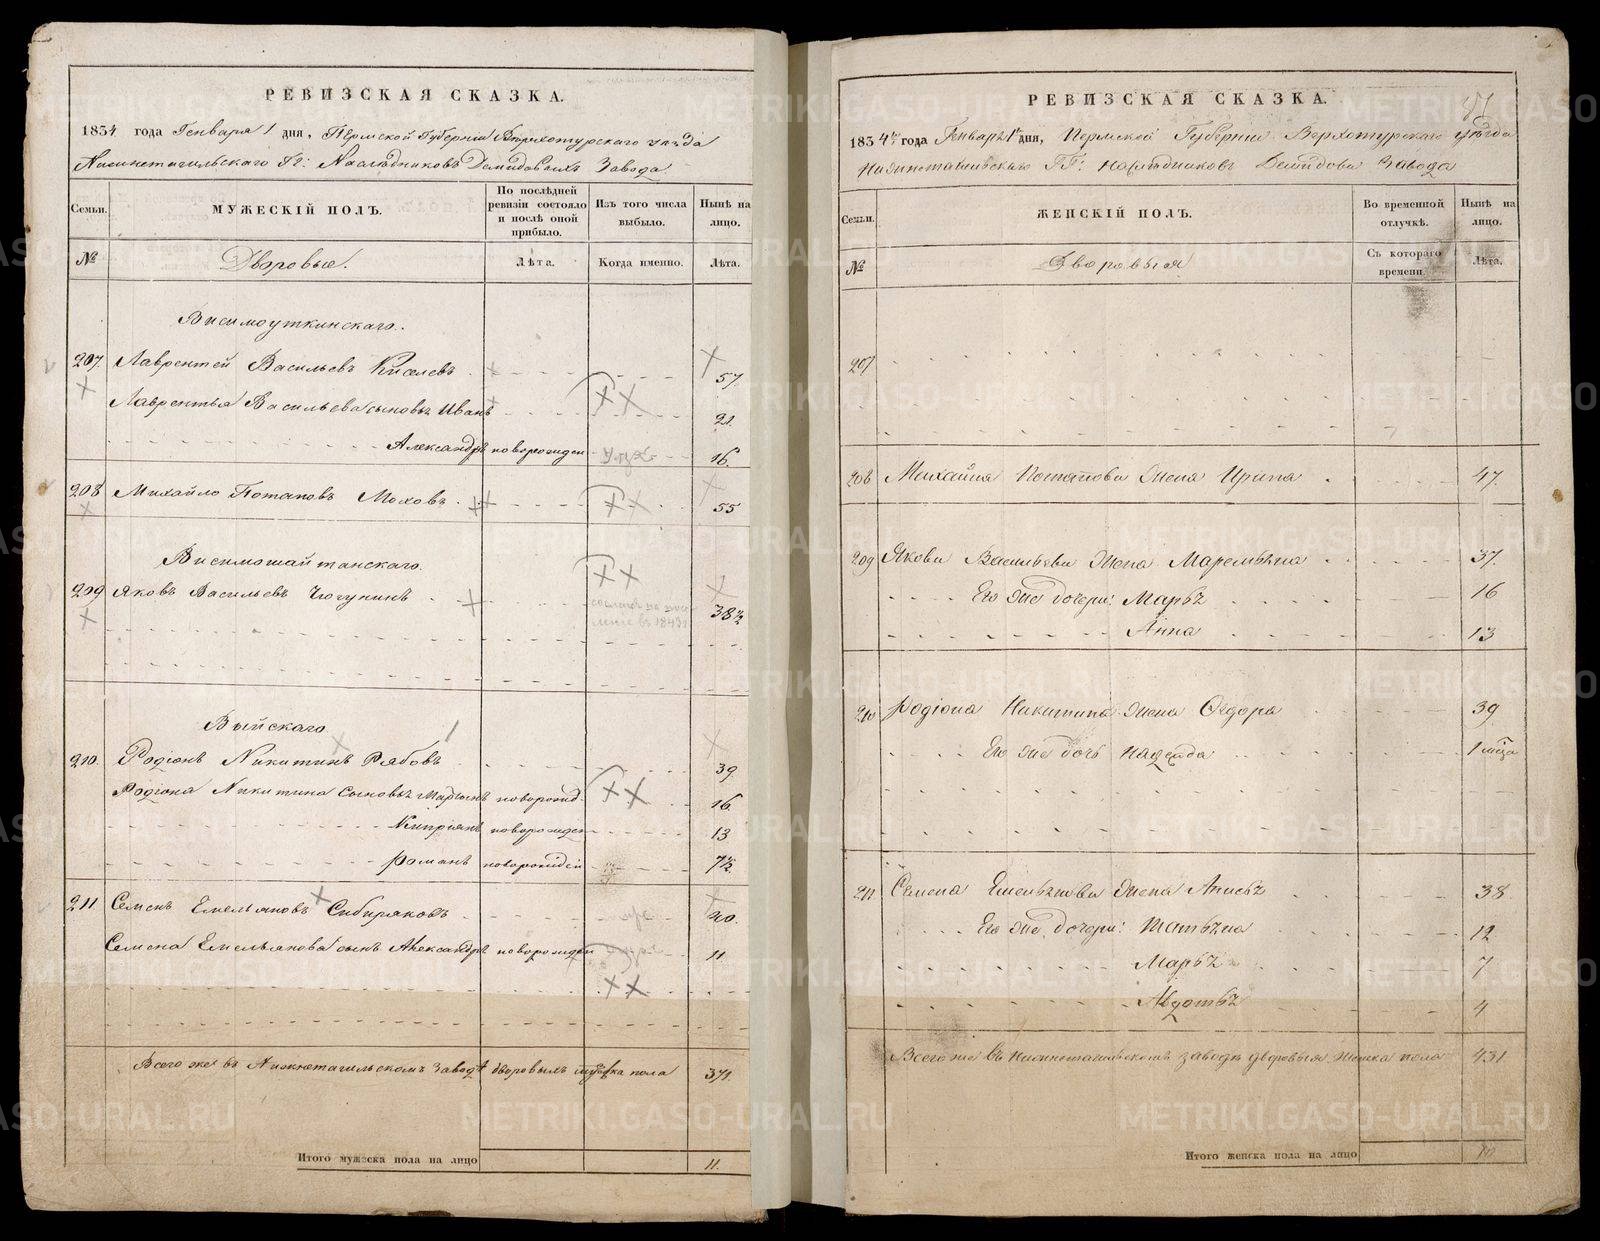 РЕВИЗСКАЯ СКАЗКА.
1834 года Генваря 1 дня, Пермской Губернии Верхотурского уезда
Нижнетагильского Гг: Наследниковъ Демидовыхъ Завода
Семьи. МУЖЕСКІЙ ПОЛЪ. По послѣдней ревизіи состояло и послѣ оной прибыло. Изъ того числа выбыло. Нынѣ на лицо.
№ Дворовые. Лѣта. Когда именно. Лѣта.
Висимоуткинскаго.
207. Лаврентей Васильевъ Киселевъ 57.
Лаврентья Васильева сыновья Иванъ 21.
Александръ новорожден 16.
208 Михайло Потаповъ Моховъ 55
Висимошайтанскаго.
209 Яковъ Васильевъ Чюгунинъ 38½
Выйскаго
210. Родіонъ Никитинъ Рябовъ 39.
Родіона Никитина сыновья Мартынъ новорожд. 16.
Кипріянъ новорожден 13
Романъ новорожден 7½
211 Семенъ Емельяновъ Сибиряковъ 40.
Семена Емельянова сынъ Александръ новорожден 11.
Всего же въ Нижнетагильскомъ заводѣ дворовыхъ мужска пола 371.
Итого мужеска пола на лицо 11.
РЕВИЗСКАЯ СКАЗКА.
1834 года Генваря 1 дня, Пермской Губернии Верхотурского уезда
Нижнетагильскаго ГГ: Наследниковъ Демидовы Завода
Семьи. ЖЕНСКІЙ ПОЛЪ. Во временной отлучкѣ. Нынѣ на лицо.
№ Дворовыя Съ котораго времени. Лѣта.
207
208 Михайла Потапова жена Ирина 47.
209 Якова Васильева жена Маремьяна 37.
Его же дочери: Марья 16
Анна 13
210 Родіона Никитина жена Федора 39
Его же дочь Надежда 1 мѣца
211 Семена Емельянова жена Анисья 38.
Его же дочери: Татьяна 12
Марья 7
Авдотья 4
Всего же въ Нижнетагильскомъ заводѣ дворовыхъ женска пола 431
Итого женска пола на лицо
METRIKI.GASO-URAL.RU